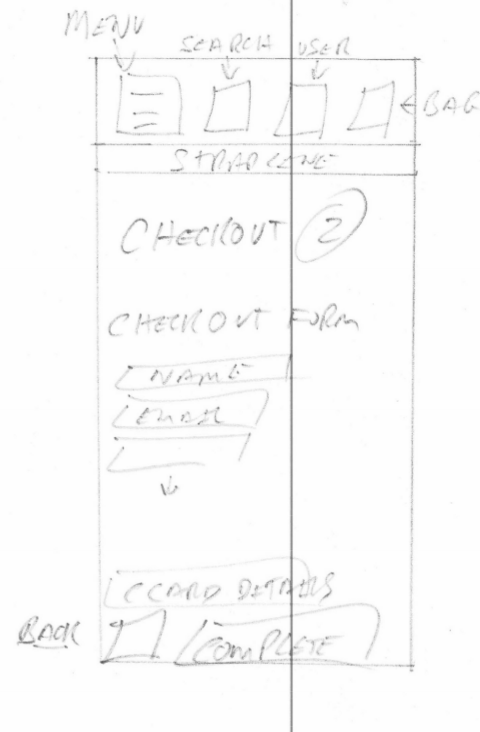 MENU
SEARCH USER
BAG
STRAPLINE
CHECKOUT 2
CHECKOUT FORM
NAME
EMAIL
CCARD DETAILS
BACK
COMPLETE